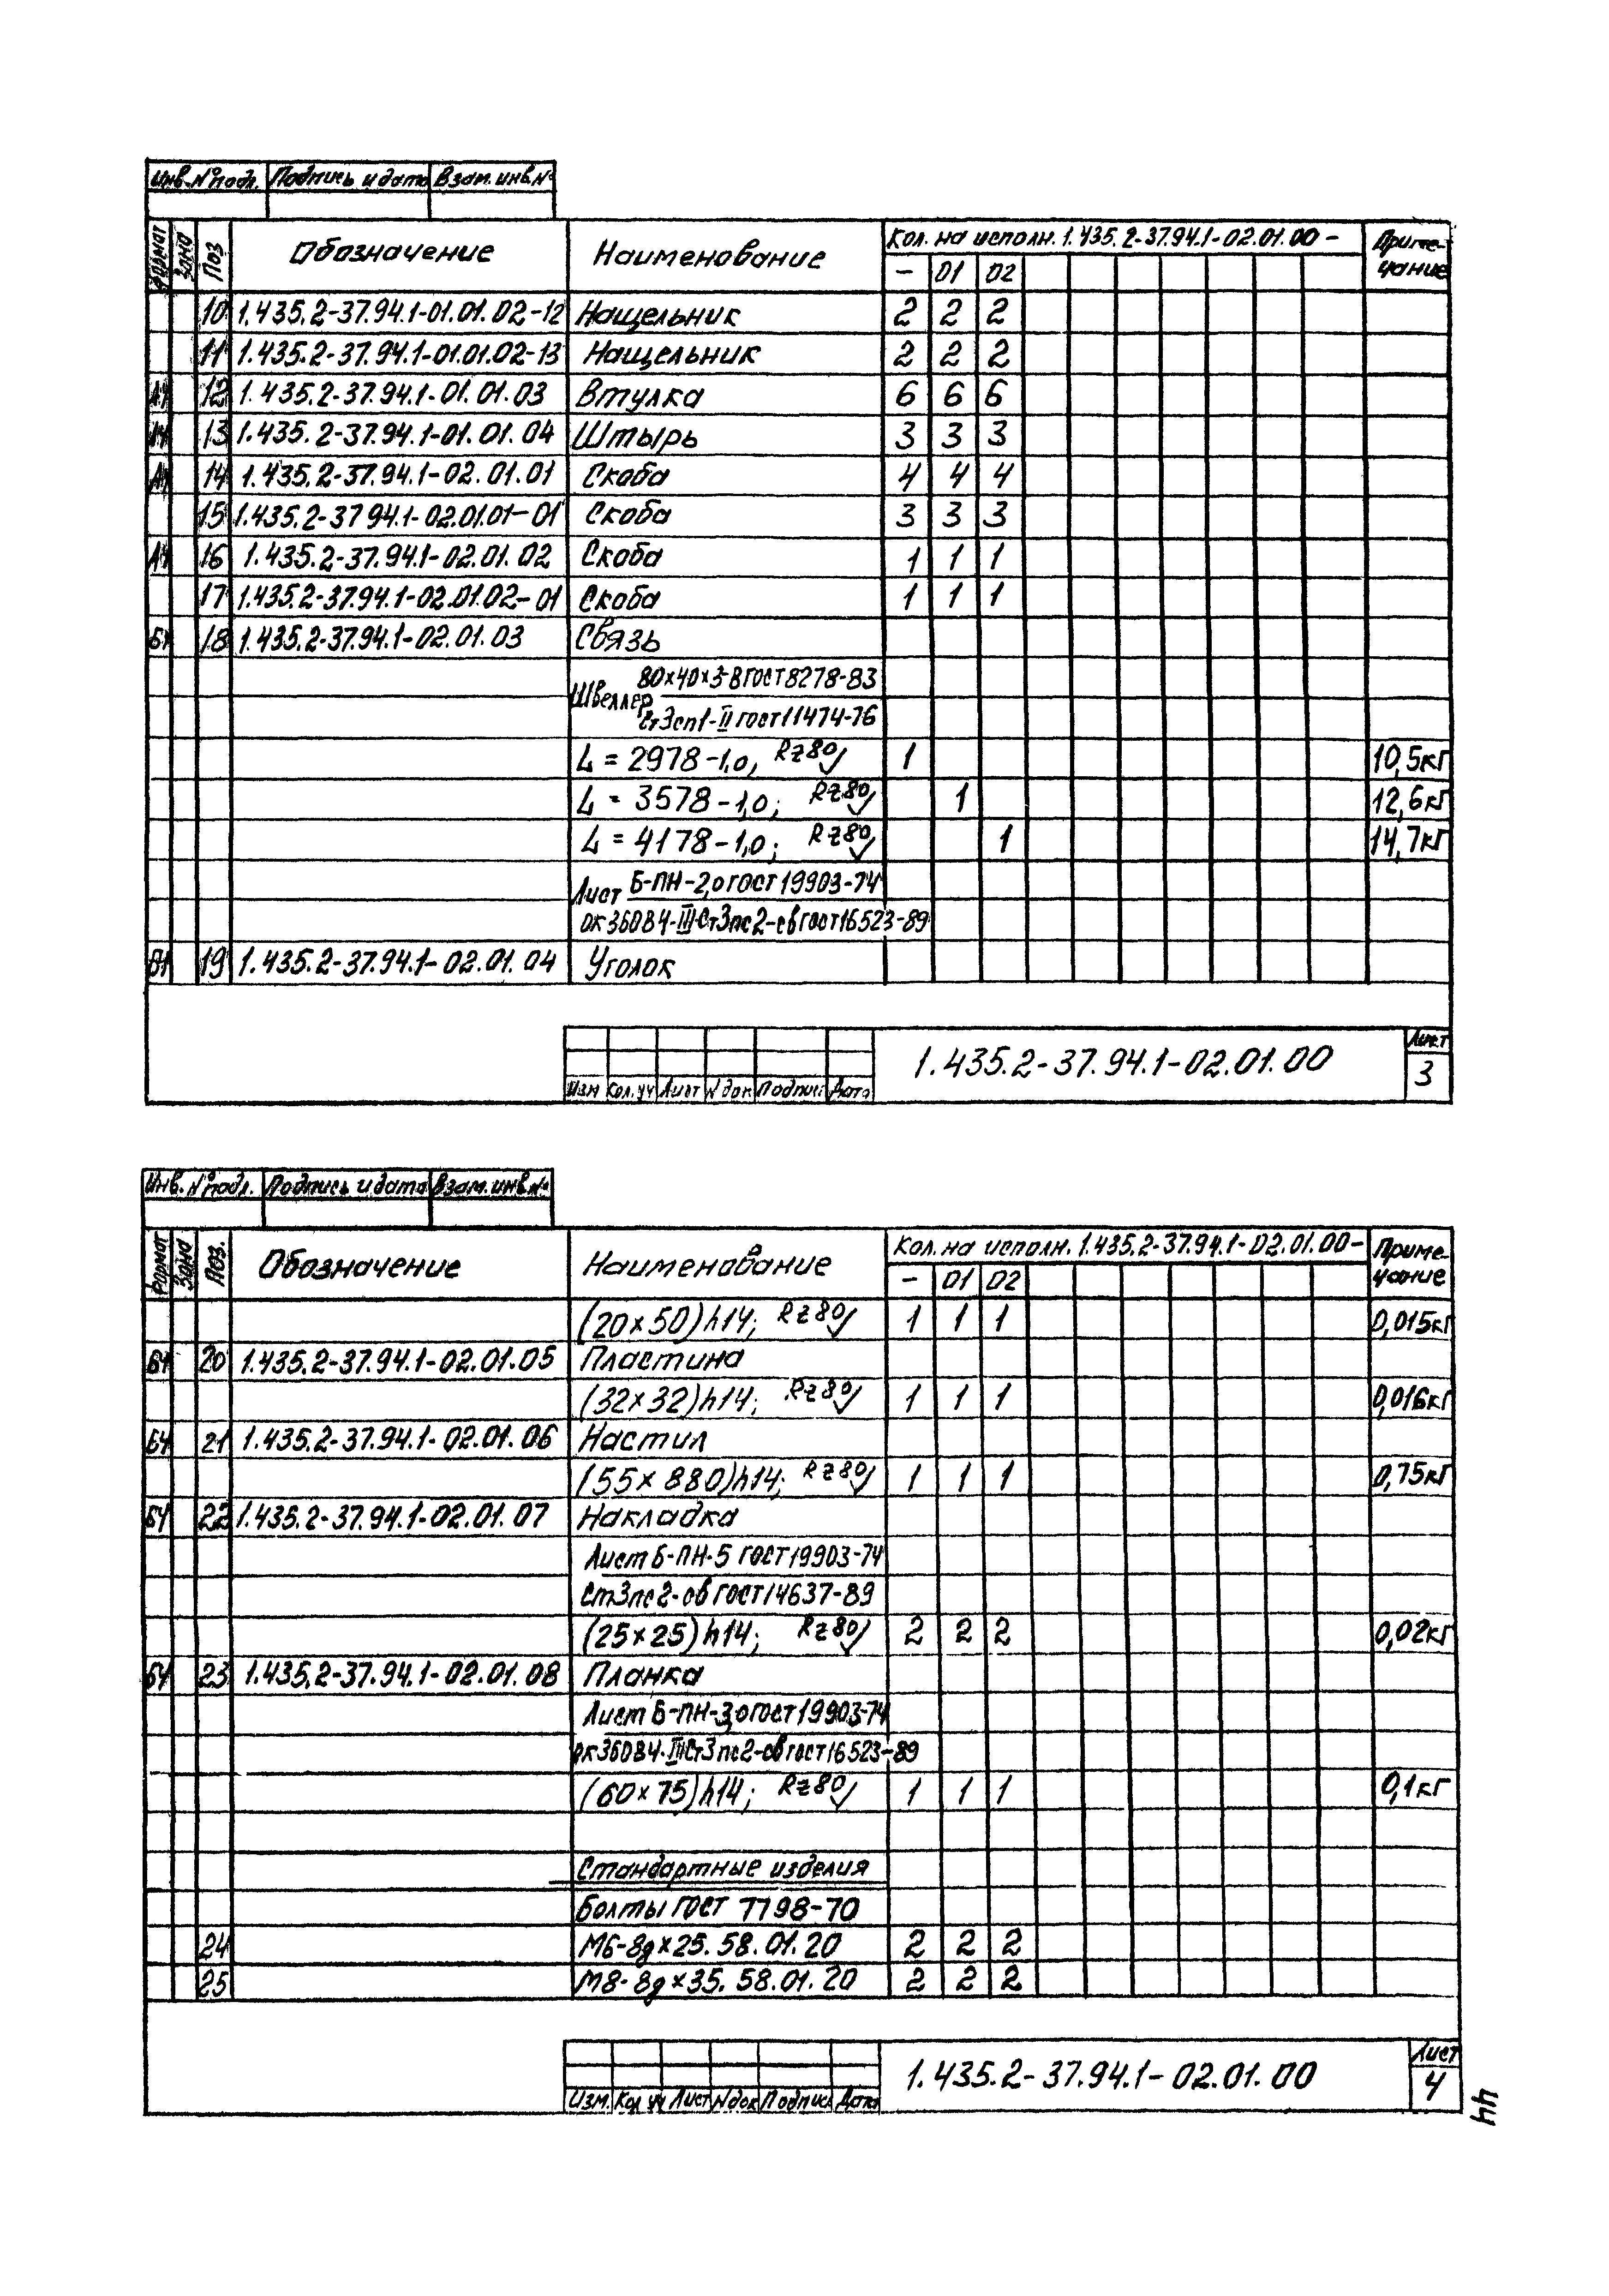 Инв. № подл. Подпись и дата Взам. инв. №
Формат Зона Поз Обозначение Наименование Кол. на исполн. 1.435.2-37.94.1-02.01.00 - Приме-
- 01 02 чание
10 1.435.2-37.94.1-01.01.02-12 Нащельник 2 2 2
11 1.435.2-37.94.1-01.01.02-13 Нащельник 2 2 2
А4 12 1.435.2-37.94.1-01.01.03 Втулка 6 6 6
А4 13 1.435.2-37.94.1-01.01.04 Штырь 3 3 3
А4 14 1.435.2-37.94.1-02.01.01 Скоба 4 4 4
15 1.435.2-37 94.1-02.01.01-01 Скоба 3 3 3
А4 16 1.435.2-37.94.1-02.01.02 Скоба 1 1 1
17 1.435.2-37.94.1-02.01.02-01 Скоба 1 1 1
БЧ 18 1.435.2-37.94.1-02.01.03 Связь
80×40×3-В ГОСТ 8278-83
Швеллер
Ст3сп1-II ГОСТ 11474-76
L = 2978-1,0, Rz80 1 10,5кг
L = 3578-1,0; Rz80 1 12,6кг
L = 4178-1,0; Rz80 1 14,7кг
Лист Б-ПН-2,0 ГОСТ 19903-74
ОК360В4-III-Ст3пс2-св ГОСТ 16523-89
БЧ 19 1.435.2-37.94.1-02.01.04 Уголок
1.435.2-37.94.1-02.01.00 Лист
Изм Кол.уч Лист N док Подпись Дата 3
Инв. № подл. Подпись и дата Взам. инв. №
Формат Зона Поз. Обозначение Наименование Кол. на исполн. 1.435.2-37.94.1-02.01.00- Приме-
- 01 02 чание
(20×50)h14; Rz80 1 1 1 0,015кг
БЧ 20 1.435.2-37.94.1-02.01.05 Пластина
(32×32)h14; Rz80 1 1 1 0,016кг
БЧ 21 1.435.2-37.94.1-02.01.06 Настил
(55×880)h14; Rz80 1 1 1 0,75кг
БЧ 22 1.435.2-37.94.1-02.01.07 Накладка
Лист Б-ПН-5 ГОСТ 19903-74
Ст3пс2-св ГОСТ 14637-89
(25×25)h14; Rz80 2 2 2 0,02кг
БЧ 23 1.435.2-37.94.1-02.01.08 Планка
Лист Б-ПН-3,0 ГОСТ 19903-74
ОК360В4-III Ст3пс2-св ГОСТ 16523-89
(60×75)h14; Rz80 1 1 1 0,1кг
Стандартные изделия
Болты ГОСТ 7798-70
24 М6-8g×25.58.01.20 2 2 2
25 М8-8g×35.58.01.20 2 2 2
1.435.2-37.94.1-02.01.00 Лист
Изм. Кол.уч Лист N док Подпись Дата 4
44